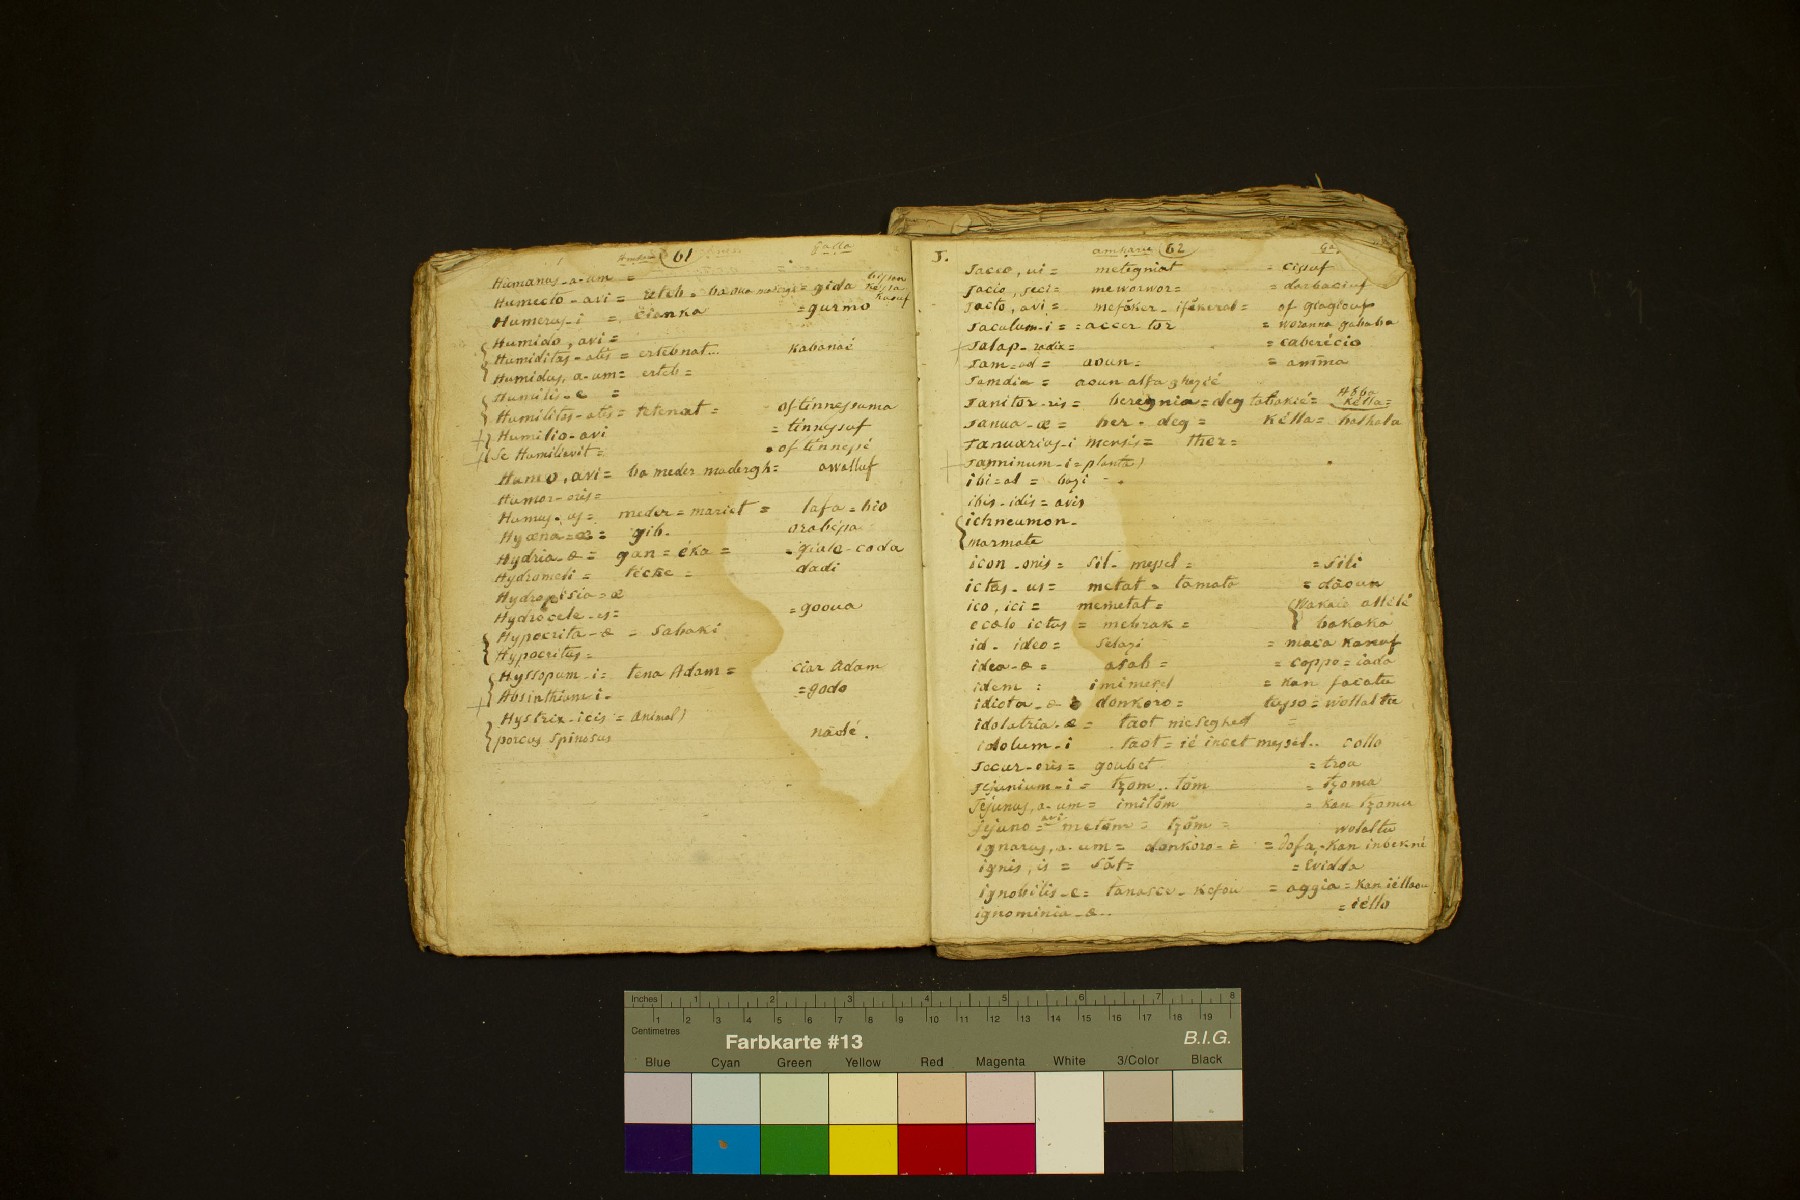 61 Galla
Humanus-a-um =
Humecto-avi = reteb = = gida
Humerus-i = cianka = gurmo
Humido, avi =
Humiditas-atis = ertebnat... kabanaé
Humidus, a-um = erteb =
Humilis-e =
Humilitas-atis = tetenat = of tinnessuma
Humilio-avi = tinnessuf
se Humiliavit = of tinnesse
Humo, avi = ba meder madergh = awalluf
Humor-oris =
Humus-us = meder = mariet = lafa = bio
Hyæna-æ = gib. orabesa
Hydria-æ = gan = éka = = giale-coda
Hydromeli = técke = dadi
Hydropisia-æ
Hydrocele-es = = gooua
Hypocrita-æ = Sabaki
Hypocritus =
Hyssopum-i = tena Adam = ciar Adam
Absinthium i- = godo
Hystrix-icis = animal)
porcus Spinosus nādé.
J. amharic 62
Jaceo, ui = metegniat = cissuf
Jacio, jeci = meworwor = = darbaciuf
Jacto, avi = mefāker = of giagiouf
Jaculum-i = = accer tor = woranna gababa
Jalap-radix = = caberécio
Jam-ad = aoun = = amma
Jamdiu = aoun alfa
Janitor-ris = beregnia = deg tabakié = Abba Kélla =
Janua-æ = ber-deg = Kélla = balbala
Januarius-i mensis = Ther =
Jasminum-i = planta)
ibi = ad = bazi
ibis-idis = avis
ichneumon-
marmota
icon-onis = Sil-messel = = Sili
ictus-us = metat = tamata = dāoun
ico, ici = memetat = attélé
e cælo ictus = mebrak = bakaka
id-ideo = Selazi = maca kanaf
idea-æ = asab = = coppo = iada
idem : imimesel = kan facatu
idiota-æ donkoro = tusso = wollaltu
idolatria-æ = taot meseghed =
idolum-i taot = ié incet messel.. collo
Jecur-oris = goubet = troa
Jejunium-i = tzom.. tōm = tzoma
Jejunus, a-um = imitōm = kan tzomu
Jejuno = avi metōm = tzōm =
wolaltu
ignarus, a-um = donkoro = = Dofa, kan inbekné
ignis, is = Sāt = = Evidda
ignobilis-e = tanasce-kefou = aggia = kan iéllaou
ignominia-æ.. = iéllo
Inches 1 2 3 4 5 6 7 8
1 2 3 4 5 6 7 8 9 10 11 12 13 14 15 16 17 18 19
Centimetres
Farbkarte #13 B.I.G.
Blue Cyan Green Yellow Red Magenta White 3/Color Black